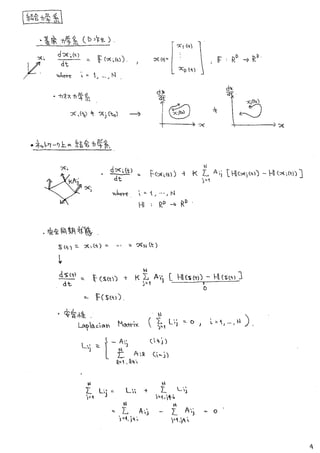 結合力学系
・基本力学系 (D次元).
dx_i(t)/dt = F(x_i(t)), x(t) = [x_1(t) ⋮ x_D(t)], F : R^D → R^D.
x_i
where i = 1, …, N.
・カオス力学系
x_i(t) ≠ x_j(t)
→
dx/dt
x_i(t)
x
≠
dx/dt
x_j(t)
x
・ネットワーク上の結合力学系
x_i
KA_ij
x_j
・dx_i(t)/dt = F(x_i(t)) + K Σ_{j=1}^{N} A_ij [H(x_j(t)) − H(x_i(t))]
where i = 1, …, N
H : R^D → R^D.
・完全同期状態
s(t) = x_1(t) = … = x_N(t)
↓
ds(t)/dt = F(s(t)) + K Σ_{j=1}^{N} A_ij [H(s(t)) − H(s(t))]
0
= F(s(t)).
・安定性
Laplacian Matrix ( Σ_{j=1}^{N} L_ij = 0, i = 1, …, N ).
L_ij = { − A_ij (i≠j)
Σ_{k=1, k≠i}^{N} A_ik (i=j)
Σ_{j=1}^{N} L_ij = L_ii + Σ_{j=1, j≠i}^{N} L_ij
= Σ_{j=1, j≠i}^{N} A_ij − Σ_{j=1, j≠i}^{N} A_ij = 0